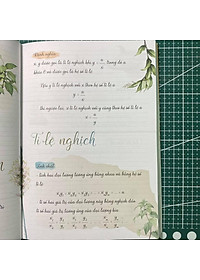 Định nghĩa
x, y được gọi là tỉ lệ nghịch nếu y = a/x trong đó a
khác 0 và được gọi là hệ số tỉ lệ
Nếu y tỉ lệ nghịch với x theo hệ số tỉ lệ a
y = a/x
thì ngược lại, x tỉ lệ nghịch với y cũng theo hệ số tỉ lệ a
x = a/y
Tỉ lệ nghịch
Tính chất
- tích hai đại lượng tương ứng bằng nhau và bằng hệ số
tỉ lệ
- tỉ số hai giá trị của đại lượng này bằng nghịch đảo
tỉ số hai giá trị tương ứng của đại lượng kia